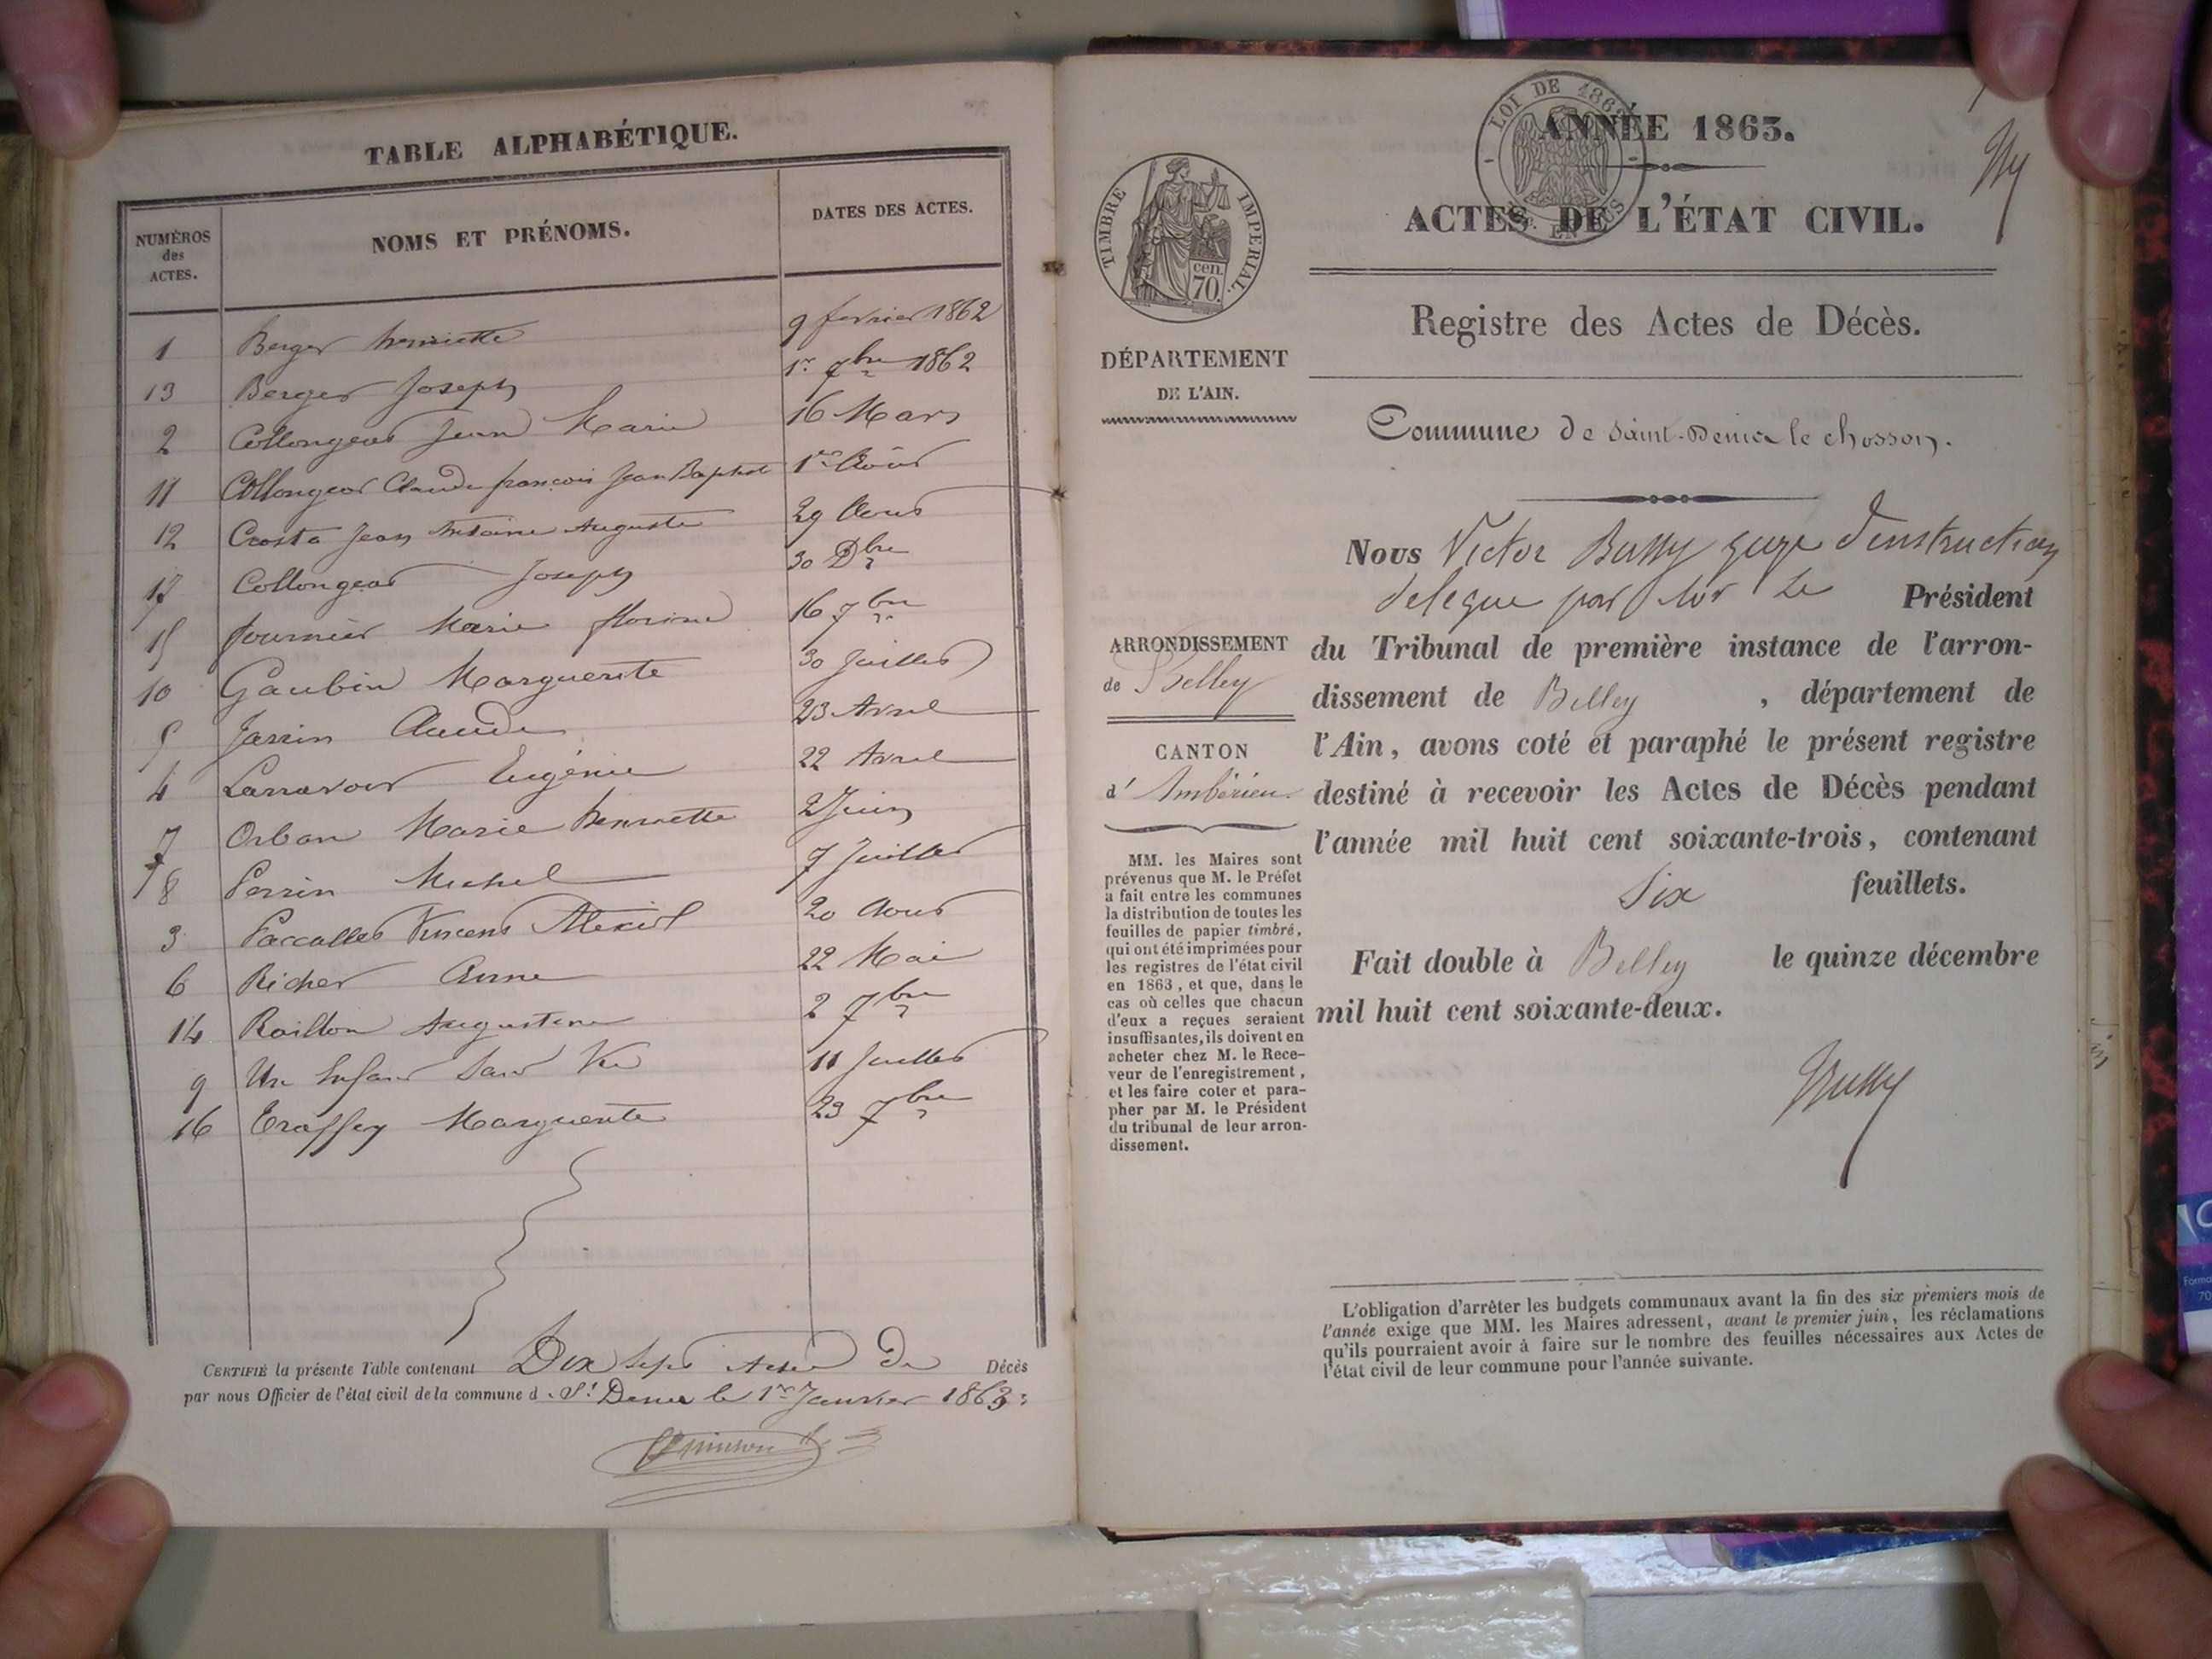 TABLE ALPHABÉTIQUE.
NUMÉROS des ACTES.
NOMS ET PRÉNOMS.
DATES DES ACTES.
1 Berger henriette 9 fevrier 1862
13 Berger Joseph 1er 7bre 1862
2 Collongeas Jean Marie 16 Mars
11 Collongeas Claude françois Jean Baptiste 1er Août
12 Costa Jean Antoine Auguste 29 Aous
17 Collongeas Joseph 30 Dbre
15 fournier Marie florine 16 7bre
10 Gaubin Marguerite 30 Juillet
5 Jarrin Claude 23 Avril
4 Larravoir Eugénie 22 Avril
7 Orban Marie henriette 2 Juin
8 Perrin Michel 7 Juillet
3 Paccallet Vincent 20 Aous
6 Richer Anne 22 Mai
14 Raillon Augustine 2 7bre
9 Un Enfant Sans Vie 11 Juillet
16 Traffey Marguerite 23 7bre
CERTIFIÉ la présente Table contenant Dix Sept Actes de Décès
par nous Officier de l'état civil de la commune d. St Denis le 1er Janvier 1863
LOI DE 1862
ANNÉE 1863.
TIMBRE IMPÉRIAL
cen. 70.
ACTES DE L'ÉTAT CIVIL.
Registre des Actes de Décès.
DÉPARTEMENT
DE L'AIN.
Commune de Saint-Denis le chosson.
ARRONDISSEMENT
de Belley
CANTON
d' Ambérieu.
MM. les Maires sont
prévenus que M. le Préfet
a fait entre les communes
la distribution de toutes les
feuilles de papier timbré,
qui ont été imprimées pour
les registres de l'état civil
en 1863, et que, dans le
cas où celles que chacun
d'eux a reçues seraient
insuffisantes, ils doivent en
acheter chez M. le Rece-
veur de l'enregistrement,
et les faire coter et para-
pher par M. le Président
du tribunal de leur arron-
dissement.
Nous Victor Bussy juge d'instruction
delegue par Mr Le Président
du Tribunal de première instance de l'arron-
dissement de Belley, département de
l'Ain, avons coté et paraphé le présent registre
destiné à recevoir les Actes de Décès pendant
l'année mil huit cent soixante-trois, contenant
Six feuillets.
Fait double à Belley le quinze décembre
mil huit cent soixante-deux.
Bussy
L'obligation d'arrêter les budgets communaux avant la fin des six premiers mois de
l'année exige que MM. les Maires adressent, avant le premier juin, les réclamations
qu'ils pourraient avoir à faire sur le nombre des feuilles nécessaires aux Actes de
l'état civil de leur commune pour l'année suivante.